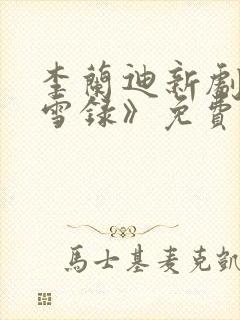 李蘭迪新劇
雪錄》免費
馬士基麥克凱